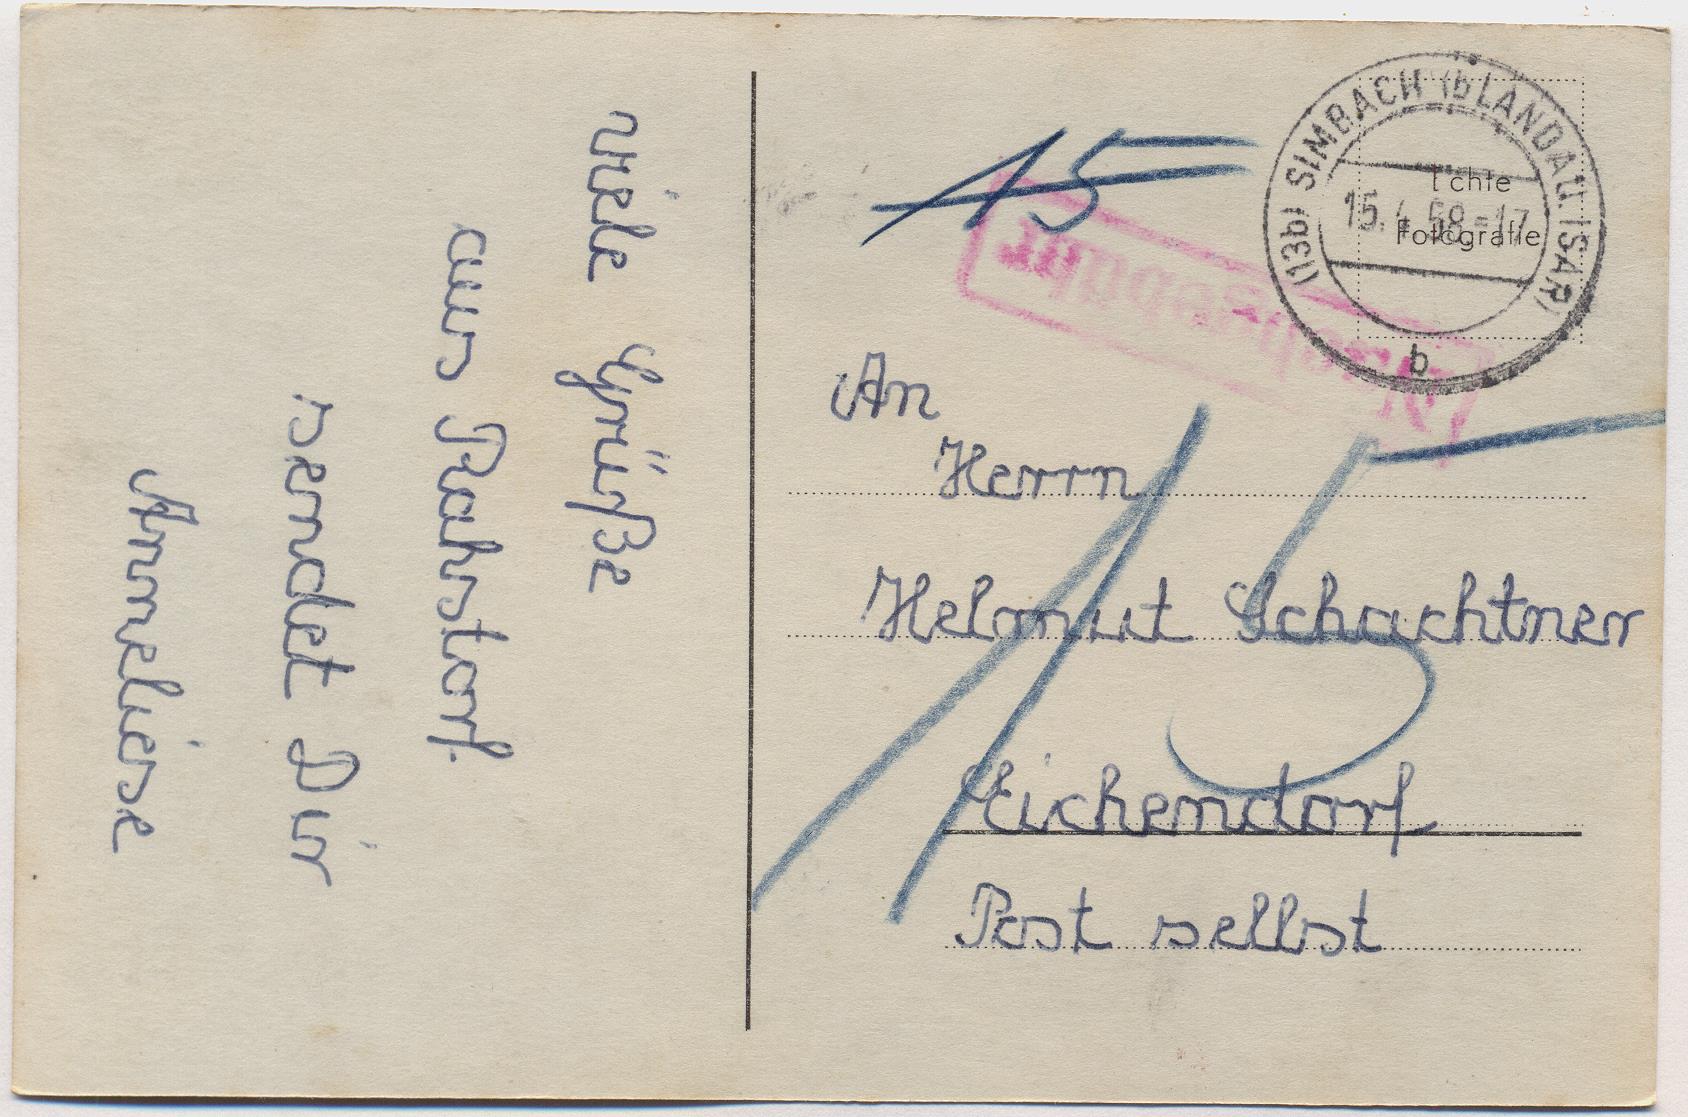 Viele Grüße
aus Rahstorf.
sendet Dir
Anneliese
15
(13b) SIMBACH (b LANDAU ISAR)
15. 4. 58 - 17
b
Echte
Fotografie
Nachgebühr
An
Herrn
15
Helmut Schachtner
Eichendorf
Post selbst